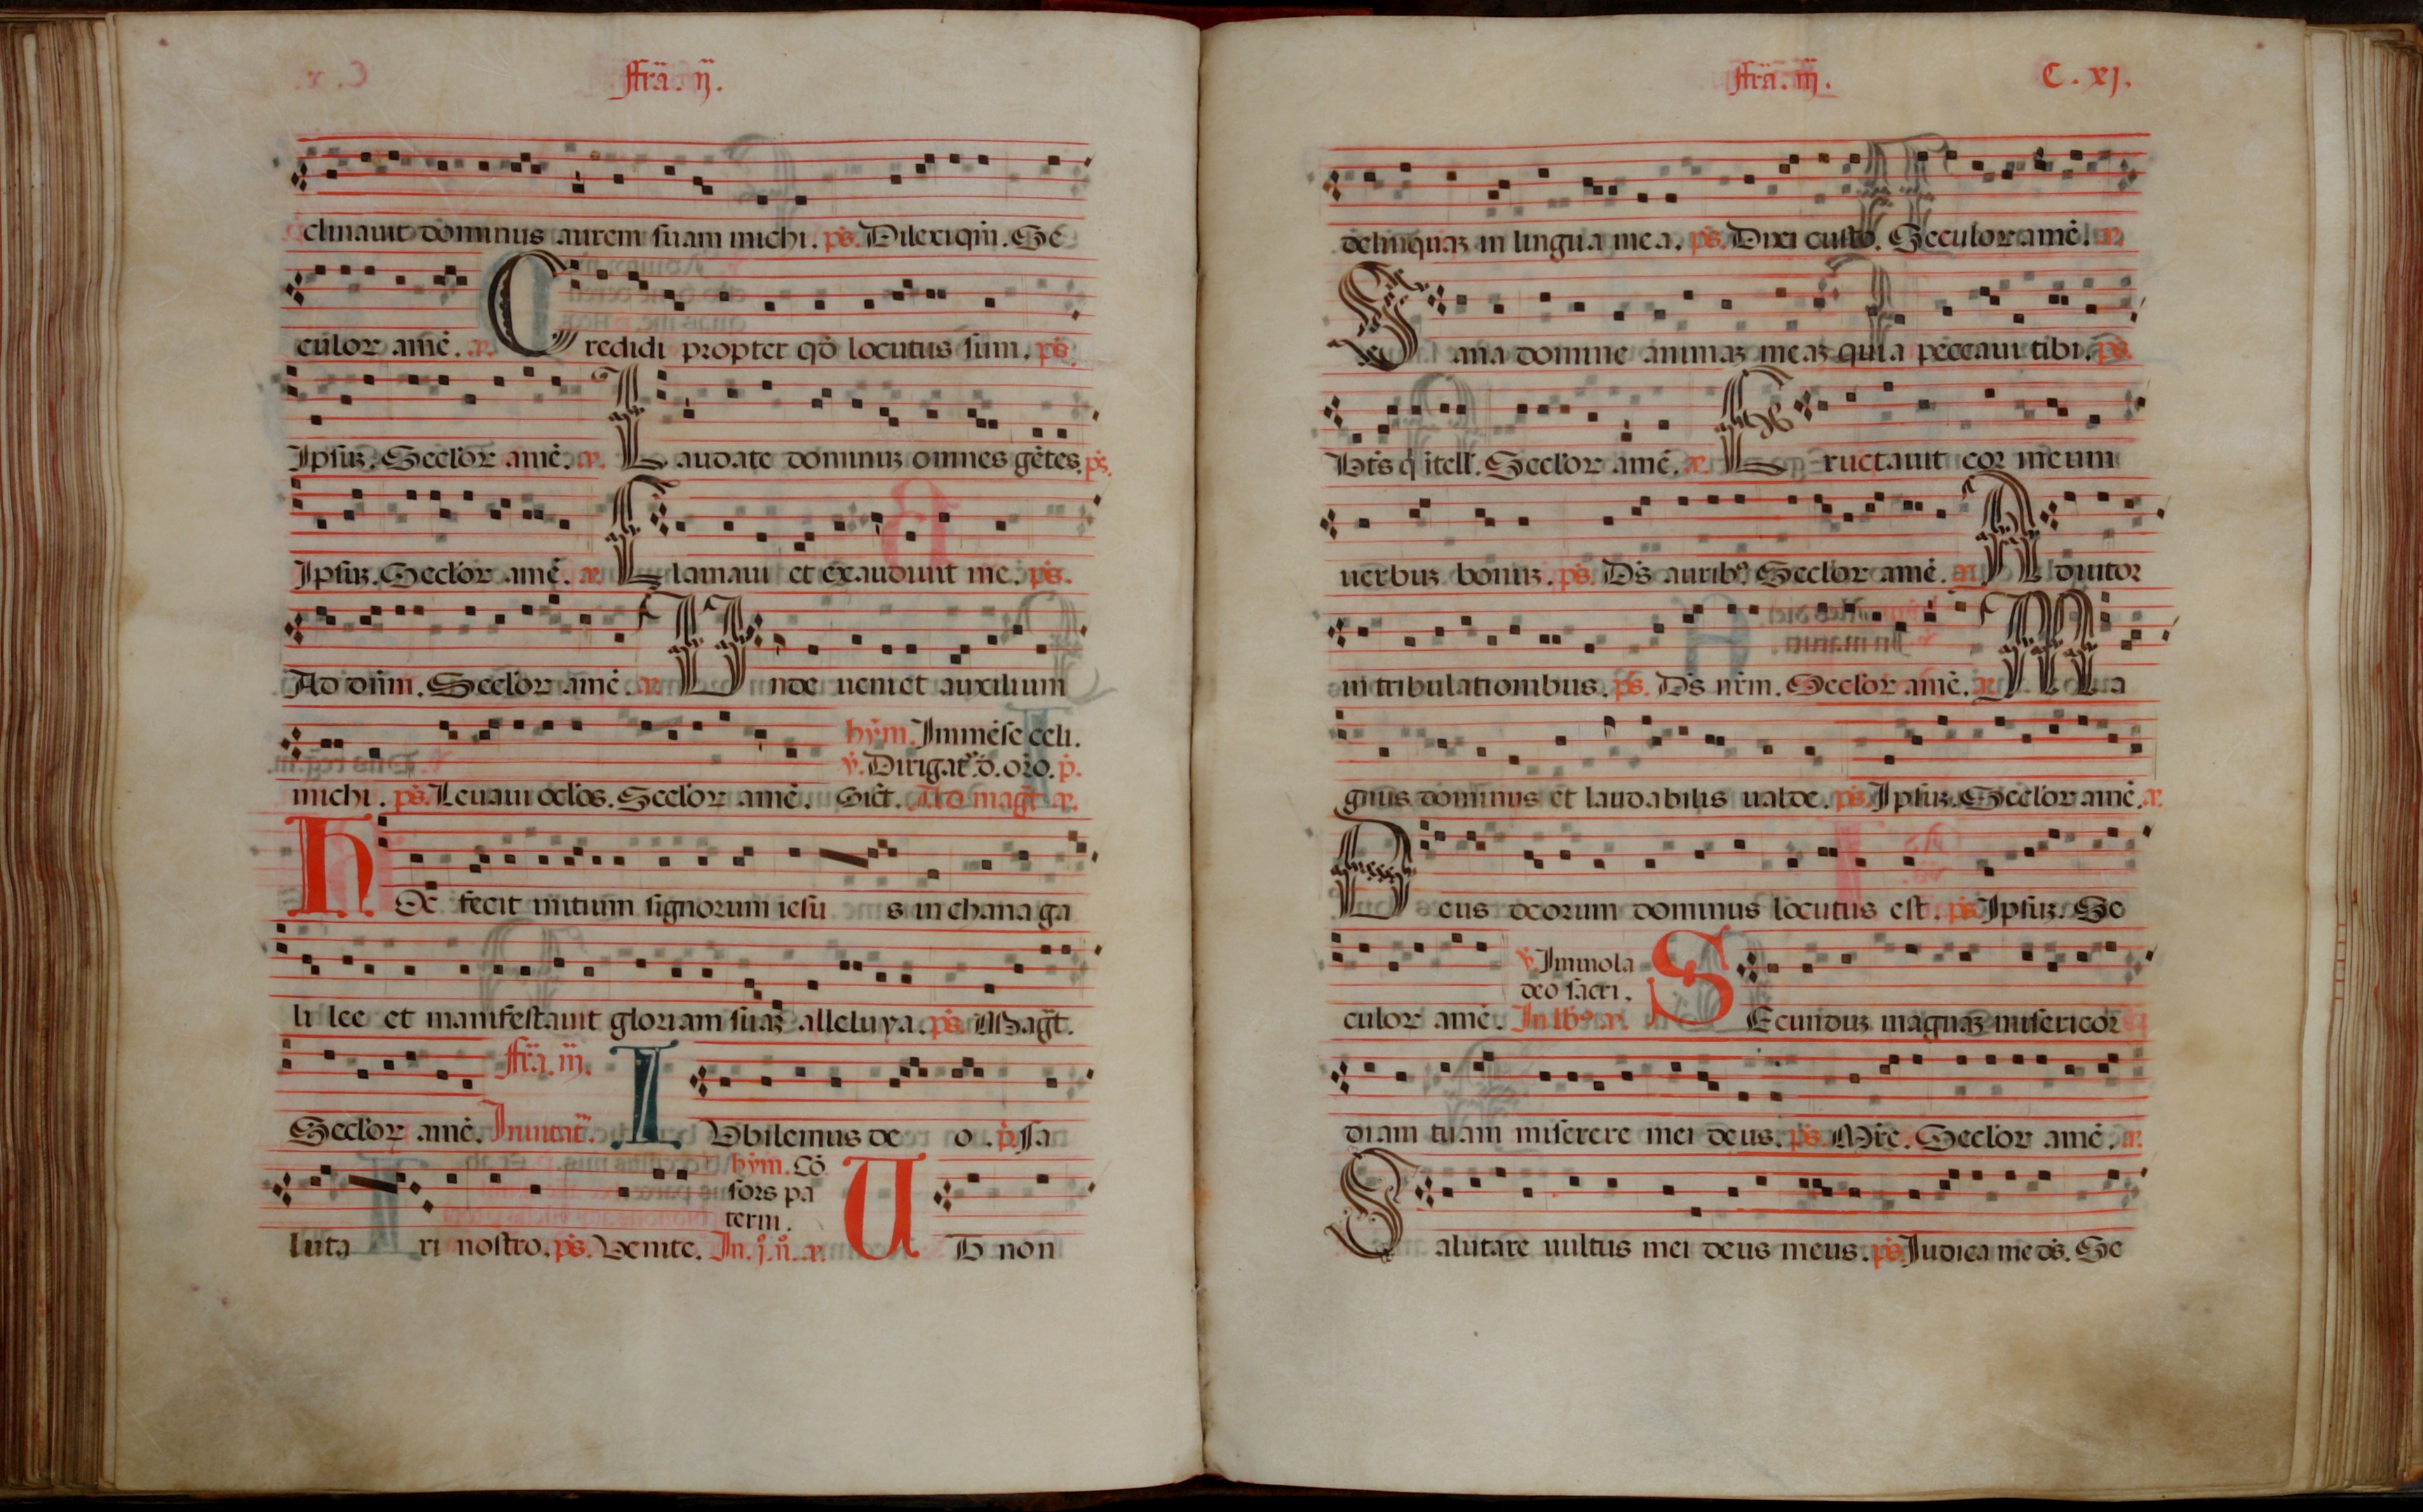 ffrã. ij.
clinauit dominus aurem suam michi. ps. Dilexi qm̃. Se
culor amẽ. a. Credidi propter qđ locutus sum. ps.
Ipsuꝫ. Seclor amẽ. a. Laudate dominuꝫ omnes gẽtes. ps.
Ipsuꝫ. Seclor amẽ. a. Clamaui et exaudiuit me. ps.
Ad dñm. Seclor amẽ. a. Unde ueniet auxilium
hym. Immẽse celi.
v. Dirigat. d. oro. p.
michi. ps. Leuaui oclos. Seclor amẽ. Sicẽt. Ad magt a.
hOc fecit initium signorum iesu s in chana ga
li lee et manifestauit gloriam suaꝫ alleluya. ps. Magt.
ffrã. iij.
Seclor amẽ. Inuitat. IUbilemus de o. p. sa
hym. Cõ
sors pa
terni.
luta ri nostro. ps. Venite. In. j. n. a. Ut non
ffrã. iij. C. xj.
delinquaꝫ in lingua mea. ps. Dixi custo. Seculor amẽ. a.
Sana domine animaꝫ meaꝫ quia peccaui tibi. ps.
Bt̃s q̃ itell. Seclor amẽ. a. Eructauit cor meum
uerbuꝫ bonuꝫ. ps. Ds̃ auribꝰ. Seclor amẽ. a. Adiutor
in tribulationibus. ps. Ds̃ nr̃m. Seclor amẽ. a. Ma
gnus dominus et laudabilis ualde. ps. Ipsuꝫ. Seclor amẽ. a.
Deus deorum dominus locutus est. ps. Ipsuꝫ. Se
v. Immola
deo sacri.
culor amẽ. In lbꝰ a. SEcunduꝫ magnaꝫ misericor
diam tuam miserere mei deus. ps. Mr̃e. Seclor amẽ. a.
Salutare uultus mei deus meus. ps. Iudica me ds̃. Se